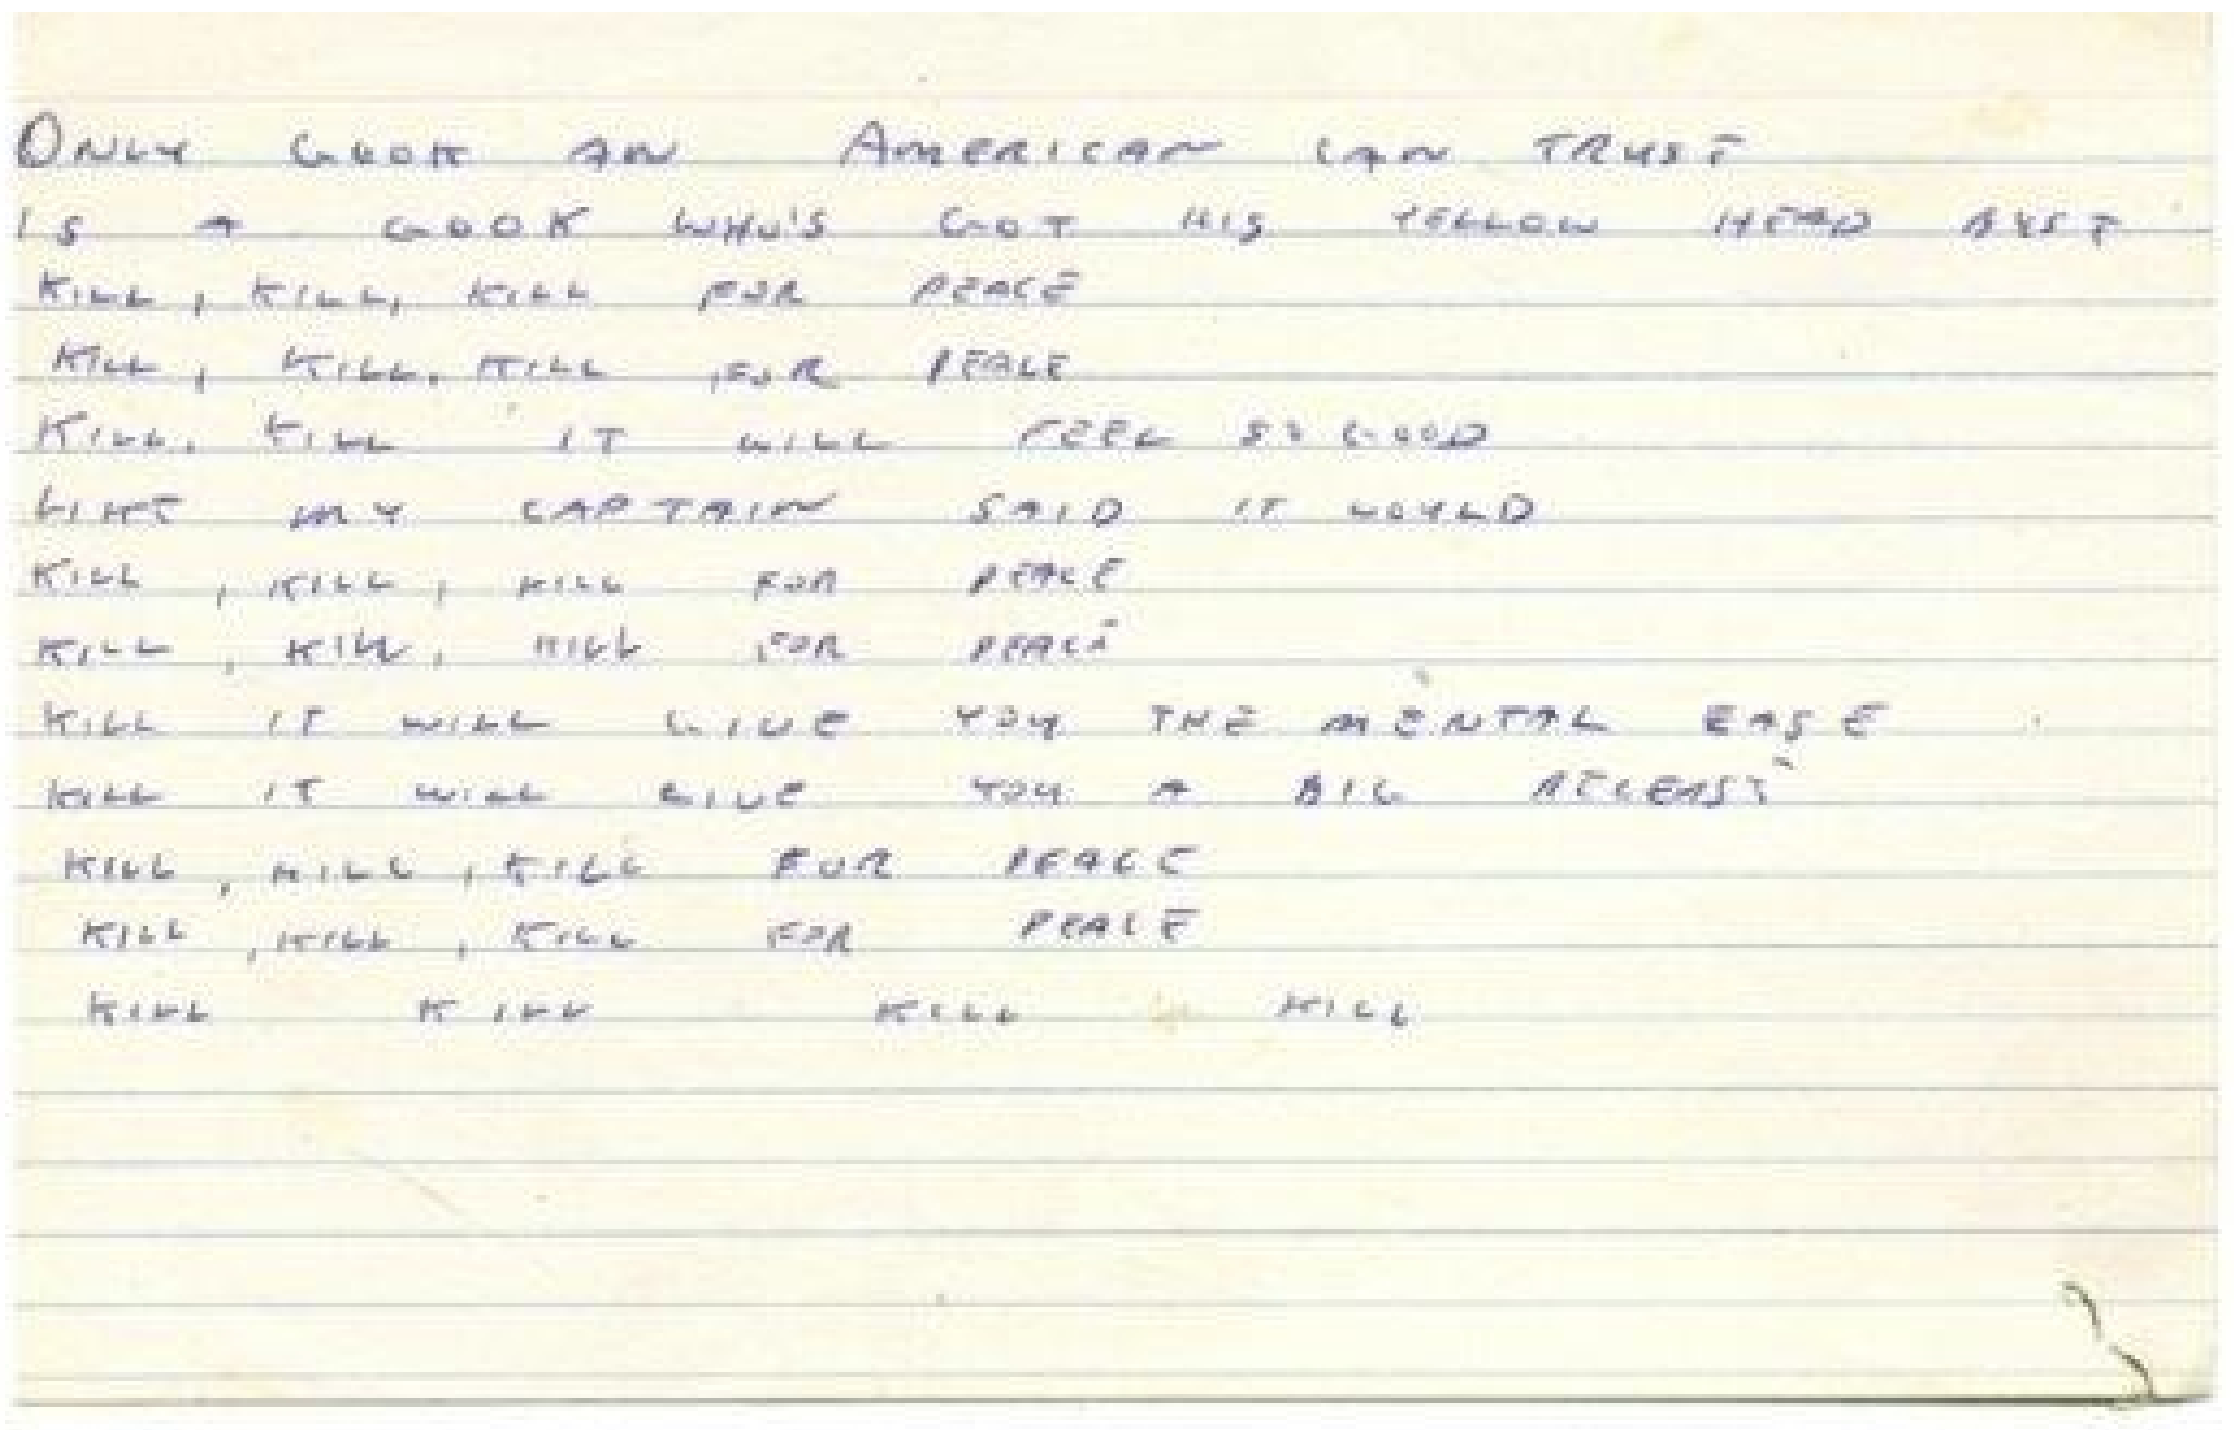 ONLY GOOK AN AMERICAN CAN TRUST
IS A GOOK WHO'S GOT HIS YELLOW HEAD BUST
KILL, KILL, KILL FOR PEACE
KILL, KILL, KILL FOR PEACE
KILL, KILL IT WILL FEEL SO GOOD
LIKE MY CAPTAIN SAID IT WOULD
KILL, KILL, KILL FOR PEACE
KILL, KILL, KILL FOR PEACE
KILL IT WILL GIVE YOU THE MENTAL EASE
KILL IT WILL GIVE YOU A BIG RELEASE
KILL, KILL, KILL FOR PEACE
KILL, KILL, KILL FOR PEACE
KILL KILL KILL KILL